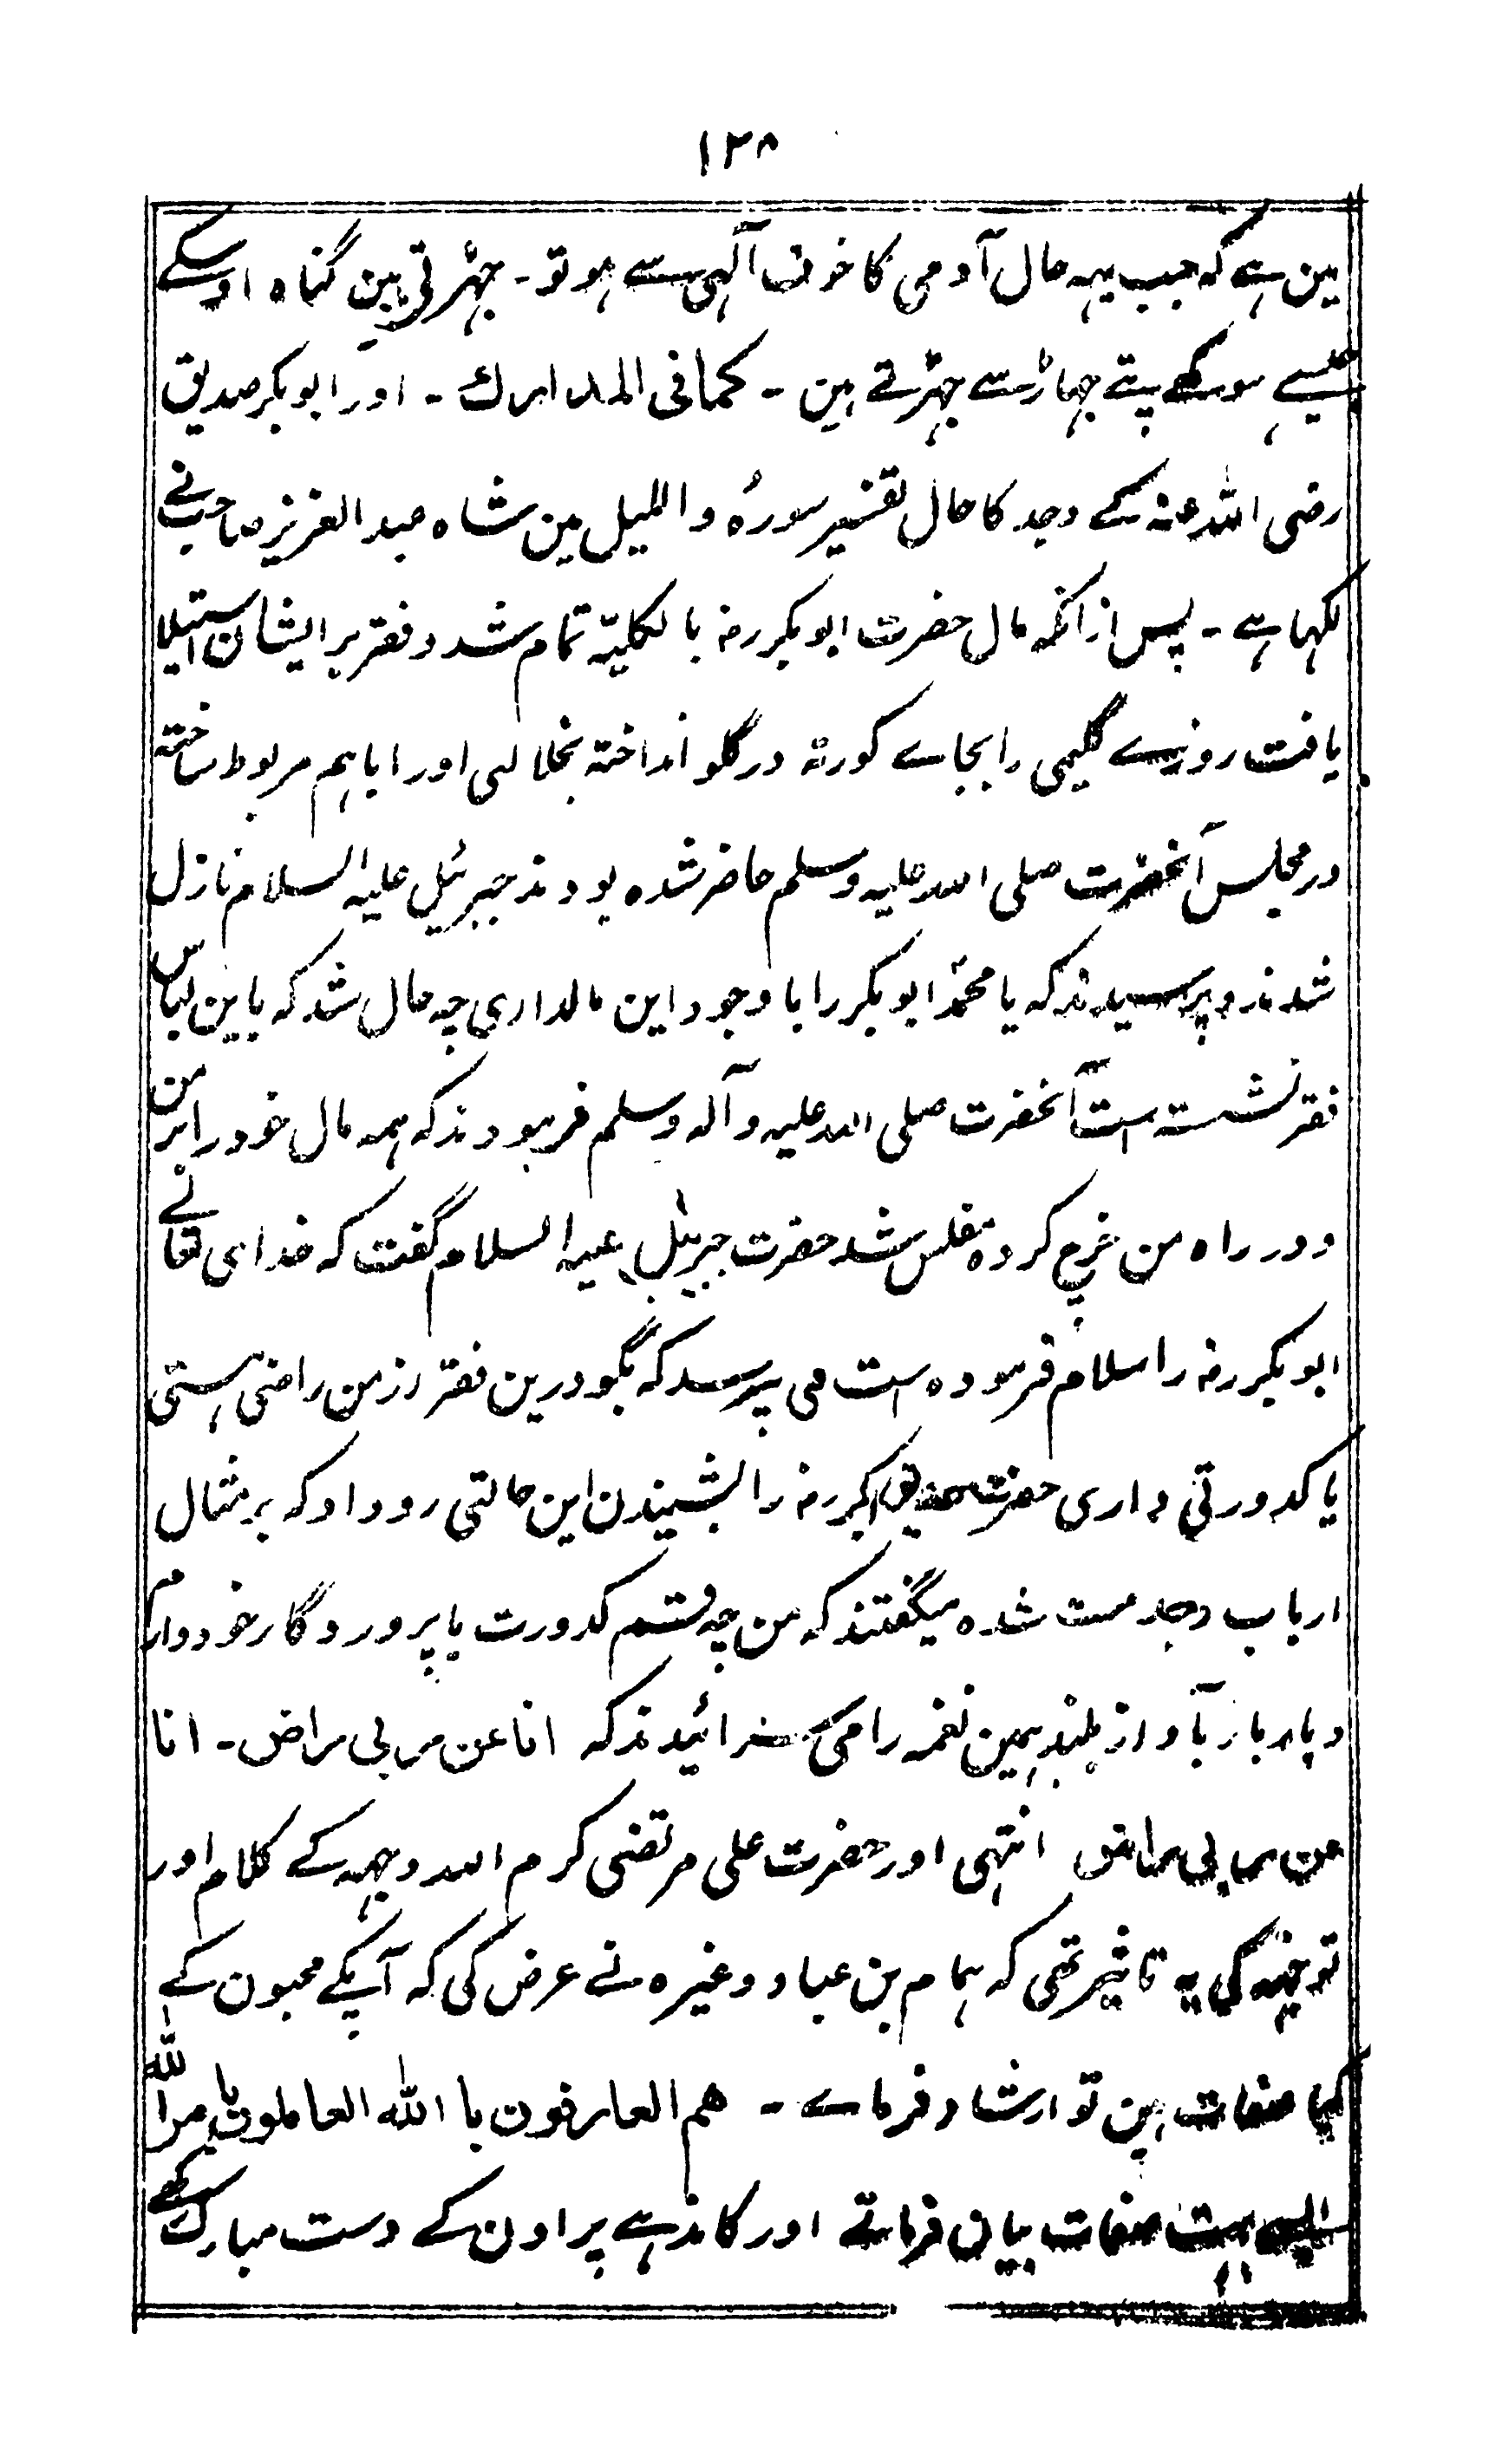 ۱۳۸
مین ہے کہ جب یہہ حال آدمی کا خوف آلہی سے ہو تو۔ جہڑتی ہین گناہ اوسکے
جیسے سوکھے پتے جہاڑ سے جہڑتے ہین ۔ کمافی المدارک ۔ اور ابوبکر صدیق
رضی اللہ عنہ کے وجد کا حال تفسیر سورۂ واللیل مین شاہ عبد العزیز صاحب نے
لکہا ہے ۔ پس ازانکہ مال حضرت ابوبکر رضہ بالکلیہ تمام شد و فقر بر ایشان استیلا
یافت روزے گلیمی را بجاے کورتہ در گلو انداختہ بخلالی اورا باہم مربوط ساختہ
در مجلس آنحضرت صلی اللہ علیہ وسلم حاضر شدہ بودند جبرئیل علیہ السلام نازل
شدند و پرسیدند کہ یا محمد ابوبکر را باوجود این مالداری چہ حال شد کہ باین لباس
فقر نشستہ است آنحضرت صلی اللہ علیہ وآلہ وسلم فرمودند کہ ہمہ مال خود را بر من
و در راہ من خرچ کردہ مفلس شد حضرت جبرئیل علیہ السلام گفت کہ خدای تعالے
ابوبکر رضہ را سلام فرمودہ است می پرسد کہ بگو درین فقر از من راضی ہستی
یا کدورتی داری حضرت صدیق اکبر رضہ را بشنیدن این حالتی رو داد کہ بر مثال
ارباب وجد مست شدہ میگفتند کہ من چہ قسم کدورت با پروردگار خود دارم
و بار بار بآواز بلند ہمین نغمہ را می سرائیدند کہ انا عن ربی راض ۔ انا
عن ربی راض انتہی اور حضرت علی مرتضی کرم اللہ وجہہ کے کلام اور
توجہ کی یہ تاثیر تھی کہ ہمام بن عباد وغیرہ نے عرض کی کہ آپکے محبون کے
کیا صفات ہین تو ارشاد فرماے ۔ ھم العارفون با اللہ العاملون بامر اللہ
ایسے بہت صفات بیان فرماتے اور کاندہے پر اون کے دست مبارک رکھے